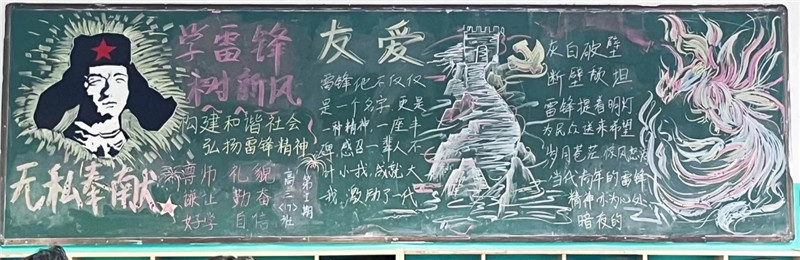 学雷锋
树新风
构建和谐社会
弘扬雷锋精神
无私奉献
尊师 礼貌
谦让 勤奋
好学 自信
第十期
高二
班
友爱
雷锋他不仅仅
是一个名字,更是
一种精神,一座丰
碑,感召一辈人不
计小我,成就大
我,激励了一代
灰白破壁
断壁颓坦
雷锋提着明灯
为民众送来希望
岁月苍茫 惊风
当代青年的雷锋
精神亦为心处
暗夜的